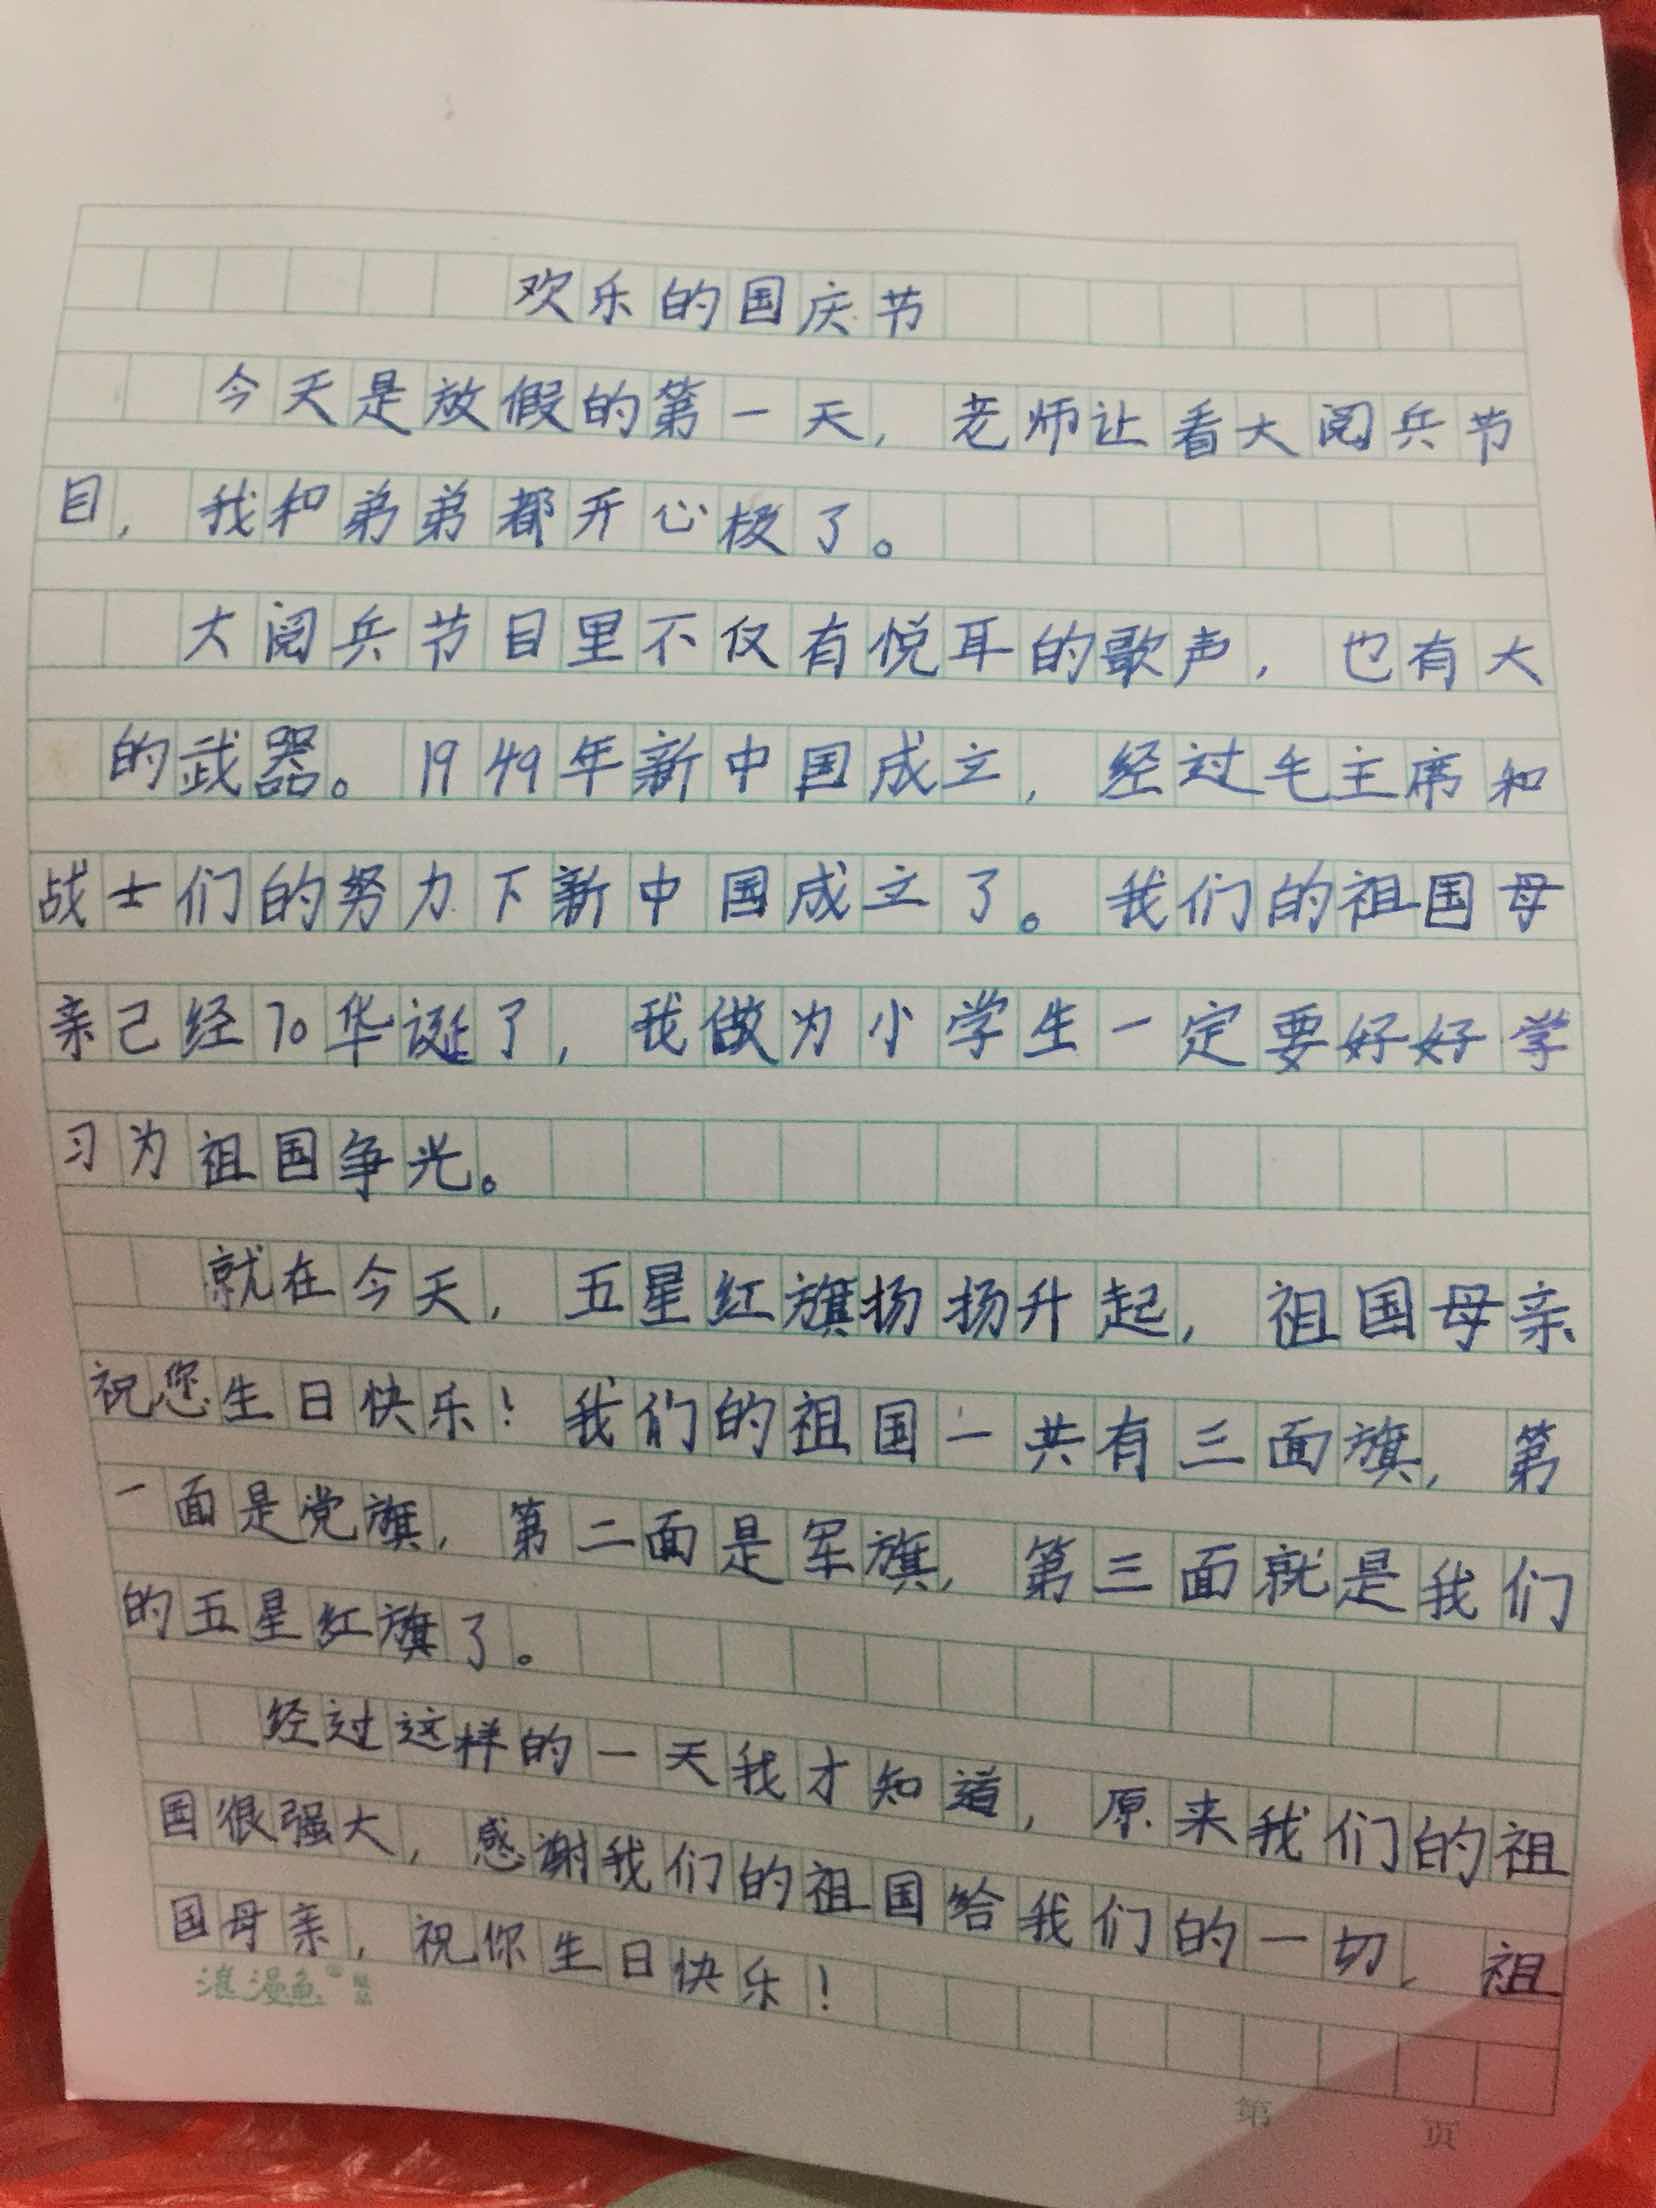 欢乐的国庆节
今天是放假的第一天，老师让看大阅兵节
目，我和弟弟都开心极了。
大阅兵节目里不仅有悦耳的歌声，也有大
的武器。1949年新中国成立，经过毛主席和
战士们的努力下新中国成立了。我们的祖国母
亲己经70华诞了，我做为小学生一定要好好学
习为祖国争光。
就在今天，五星红旗扬扬升起，祖国母亲
祝您生日快乐！我们的祖国一共有三面旗，第
一面是党旗，第二面是军旗，第三面就是我们
的五星红旗了。
经过这样的一天我才知道，原来我们的祖
国很强大，感谢我们的祖国给我们的一切，祖
国母亲，祝你生日快乐！
浪漫鱼
第 页